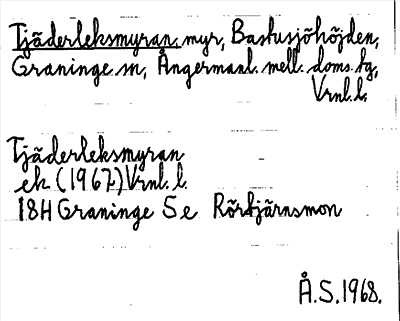 Tjäderleksmyran, myr, Bastusjöhöjden,
Graninge sn, Ångermanl. mell. doms. tg,
Vrnl. l.
Tjäderleksmyran
ek (1967) Vrnl. l.
18H Graninge 5e Rörtjärnsmon
Å.S. 1968.